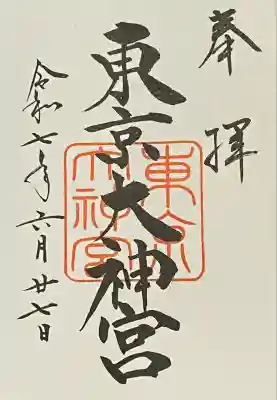 奉拝
東京大神宮
東京大神宮
令和七年六月廿七日